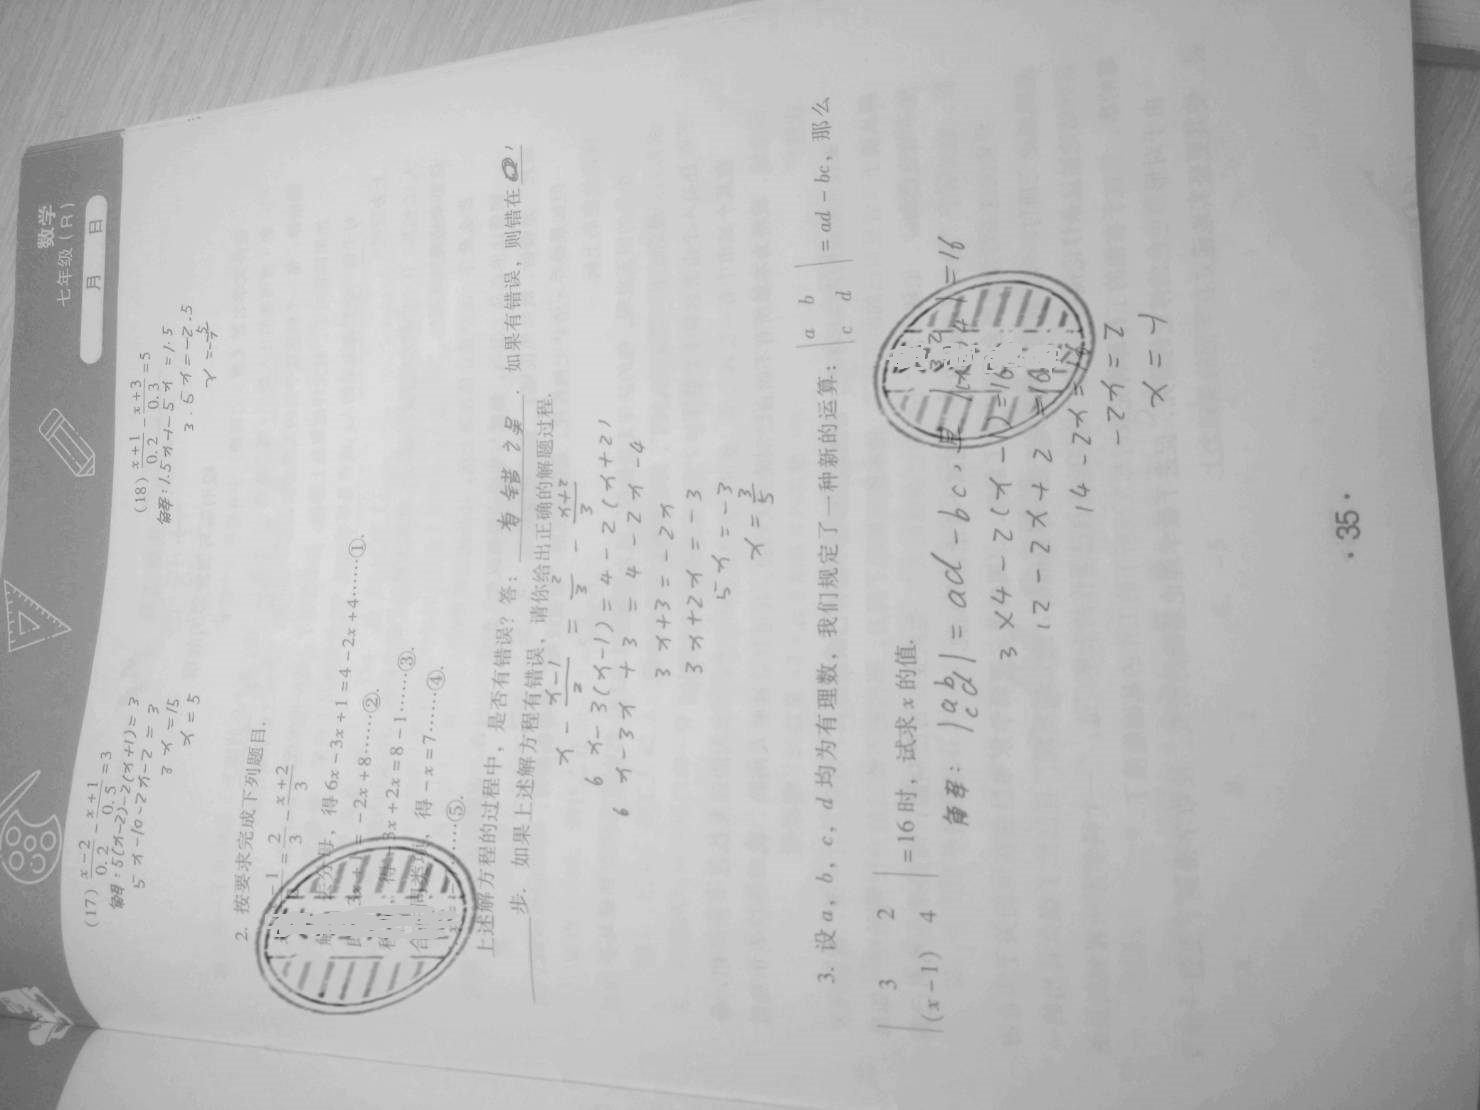 数学
七年级（R）
月 日
(17) \frac{x-2}{0.2} - \frac{x+1}{0.5} = 3
解答：5(x-2)-2(x+1)=3
5x-10-2x-2=3
3x=15
x=5
(18) \frac{x+1}{0.2} - \frac{x+3}{0.3} = 5
解答：1.5x+1-5x=1.5
3.5x=-2.5
x=\frac{5}{7}
2. 按要求完成下列题目.
-1 = \frac{2}{3} - \frac{x+2}{3}
得 6x-3x+1=4-2x+4……①.
= -2x+8……②.
3x+2x=8-1……③.
得 -x=7……④.
……⑤.
上述解方程的过程中，是否有错误？答：有错误. 如果有错误，则错在②,
步. 如果上述解方程有错误，请你给出正确的解题过程.
x - \frac{x-1}{2} = \frac{2}{3} - \frac{x+2}{3}
6x-3(x-1)=4-2(x+2)
6x-3x+3=4-2x-4
3x+3=-2x
3x+2x=-3
5x=-3
x=\frac{3}{5}
3. 设 a, b, c, d 均为有理数，我们规定了一种新的运算：|a b c d| = ad-bc，那么
|3 2 (x-1) 4| =16时，试求 x 的值.
解答：|a b c d| = ad-bc, =16
3×4-2(x-1)=16
12-2x+2=16
14-2x=
-2x=2
x=-1
·35·